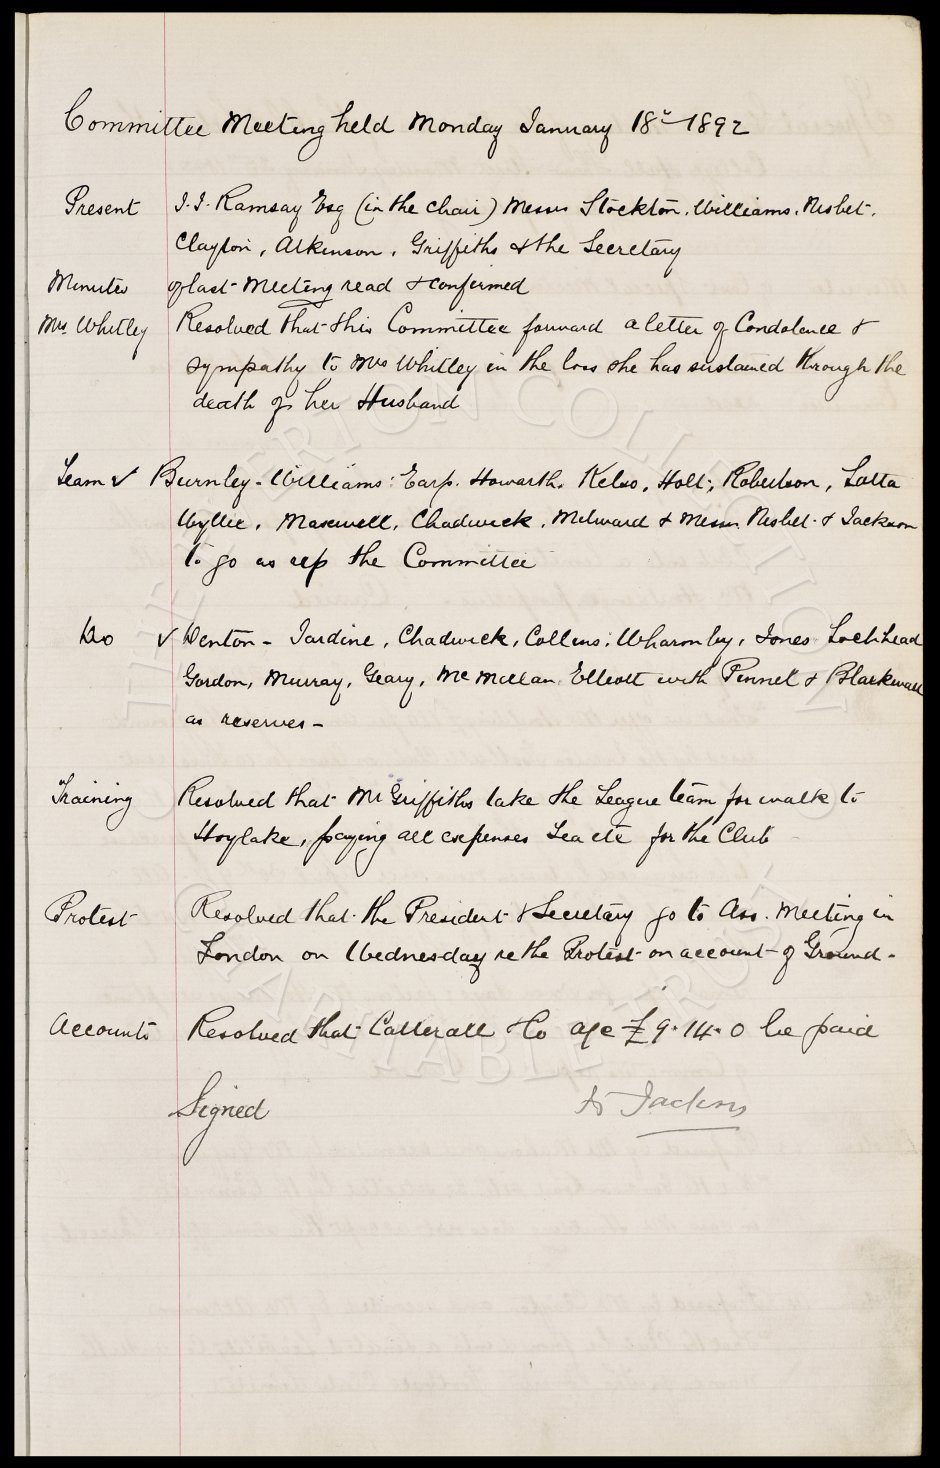 Committee Meeting held Monday January 18th 1892
Present J. J. Ramsay Esq (in the chair) Messrs Stockton, Williams, Nisbet,
Clayton, Atkinson, Griffiths & the Secretary
Minutes of last Meeting read & confirmed
Mrs Whitley Resolved that this Committee forward a letter of Condolence &
sympathy to Mrs Whitley in the loss she has sustained through the
death of her Husband
Team v Burnley - Williams: Earp. Howarth, Kelso, Holt, Robertson, Latta
Wyllie, Maxwell, Chadwick, Milward & Messrs Nisbet & Jackson
to go as rep the Committee
Do v Denton - Jardine, Chadwick, Collins, Wharmby, Jones Lochhead
Gordon, Murray, Geary, McMillan Elliott with Pinnell & Blackwall
as reserves -
Training Resolved that Mr Griffiths take the League team for walk to
Hoylake, paying all expenses Tea etc for the Club
Protest Resolved that the President & Secretary go to Ass. Meeting in
London on Wednesday re the Protest on account of Ground -
Accounts Resolved that Catterall & Co a/c £9.14.0 be paid
Signed Jackson
EVERTON COLLECTION
CHARITABLE TRUST